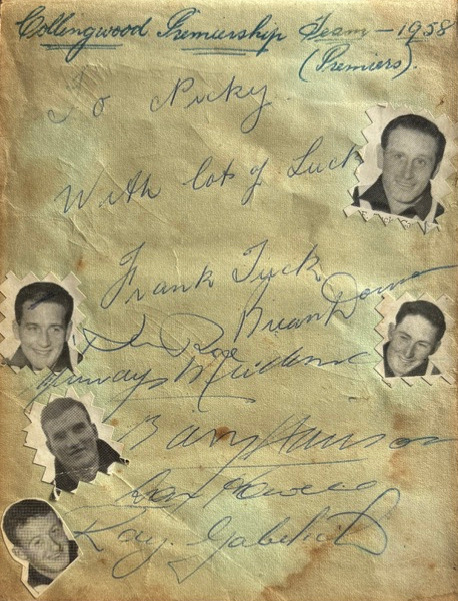 Collingwood Premiership Team - 1958
(Premiers).
To Nicky.
With lots of Luck
Frank Tuck
Brian Dorman
Rose
Murray Weideman
Barry Harrison
Ray. Gabelich